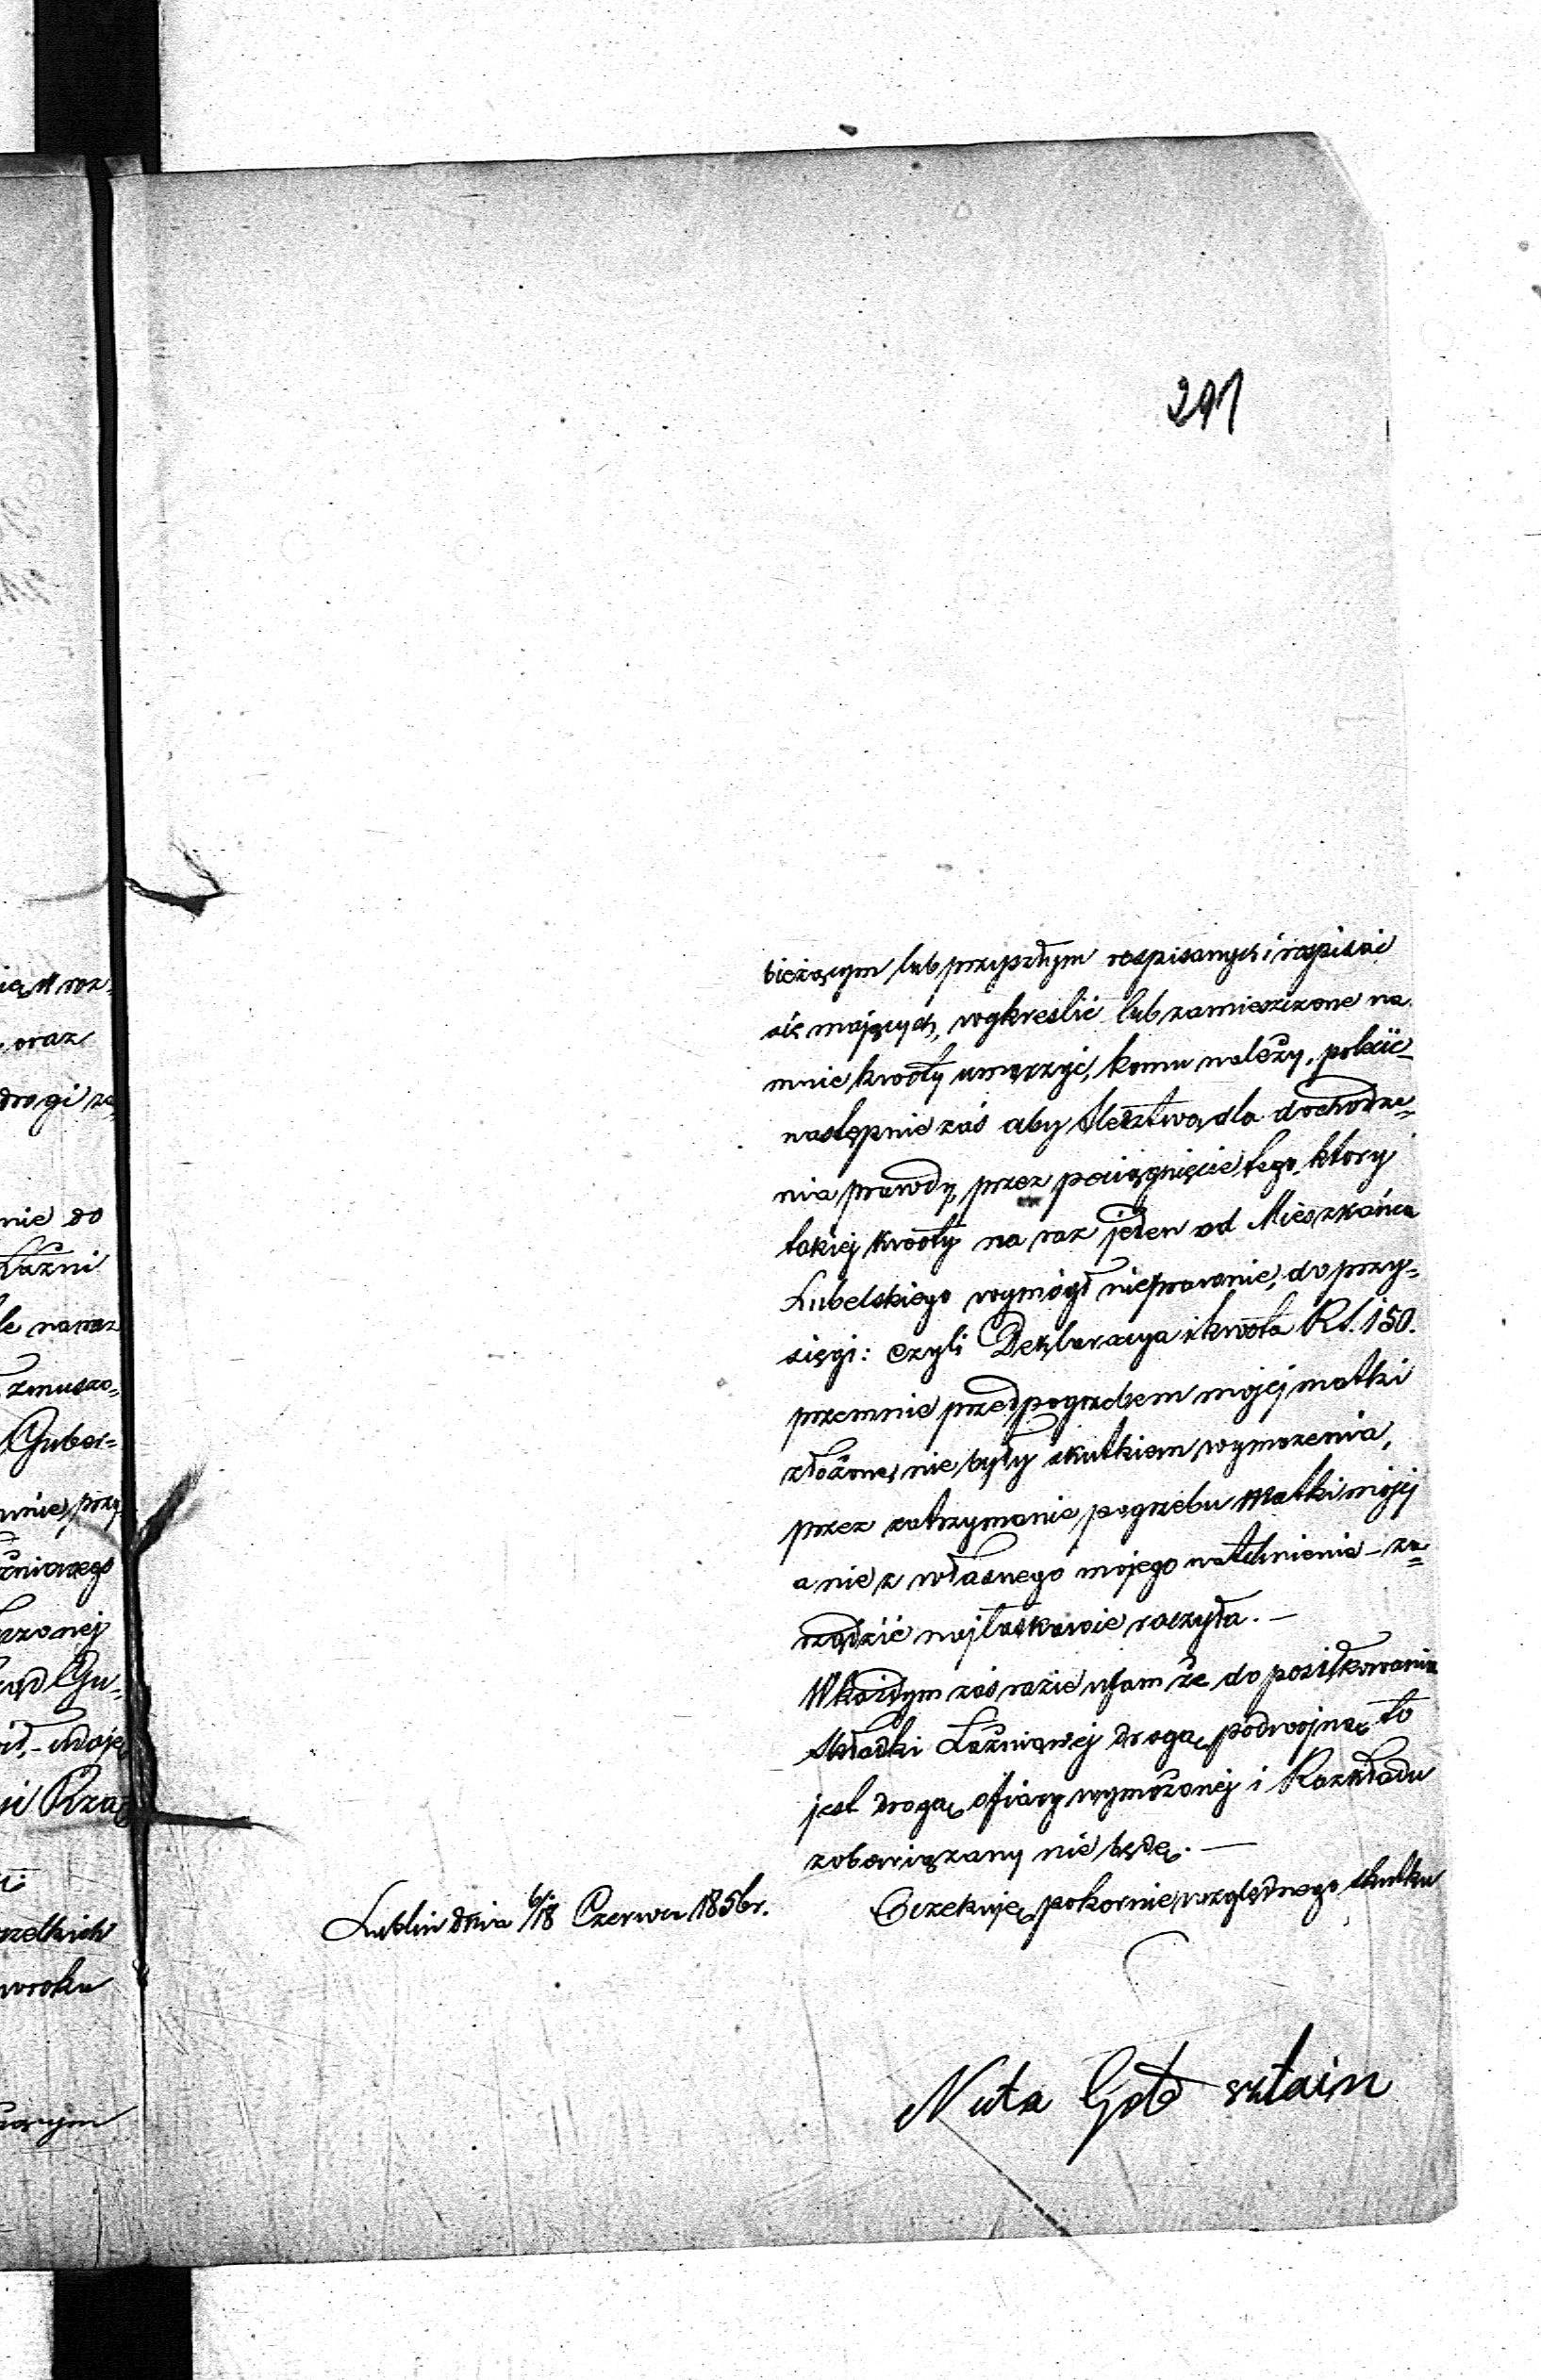 291
bieżącym lub przyszłym rospisanych i rospisać
się mających, wykreslić lub zamieszczone na
mnie kwoty umorzyć, komu należy, polecić_
następnie zaś aby śledztwo, dla dochodze=
nia prawdy, przez pociągnięcie tego, ktory
takiej kwoty na raz jeden od Mieszkańca
Lubelskiego wymógł nieprawnie, do przy=
sięgi: czyli Deklaracya i kwota Rs. 150.
przemnie przed pogrzebem mojej matki
złożone, nie były skutkiem wymożenia,
przez zatrzymanie pogrzebu Matki mojej
a nie z własnego mojego natchnienia – za=
rządzić najłaskawie raczyła. –
W każdym zaś razie ufam że do posiłkowania
składki Łaźniowej drogą podwojną, to
jest drogą ofiary wymożonej i Rozkładu
zobowiązany nie będę. —
Lublin dnia 6/18 Czerwca 1856 r.
Oczekuję pokornie, względnego skutku
Nuta Gold sztain
oraz
drogi za
nie do
Łaźni
le na raz
zmuszo=
Guber=
Gu=
Rzą
wroku